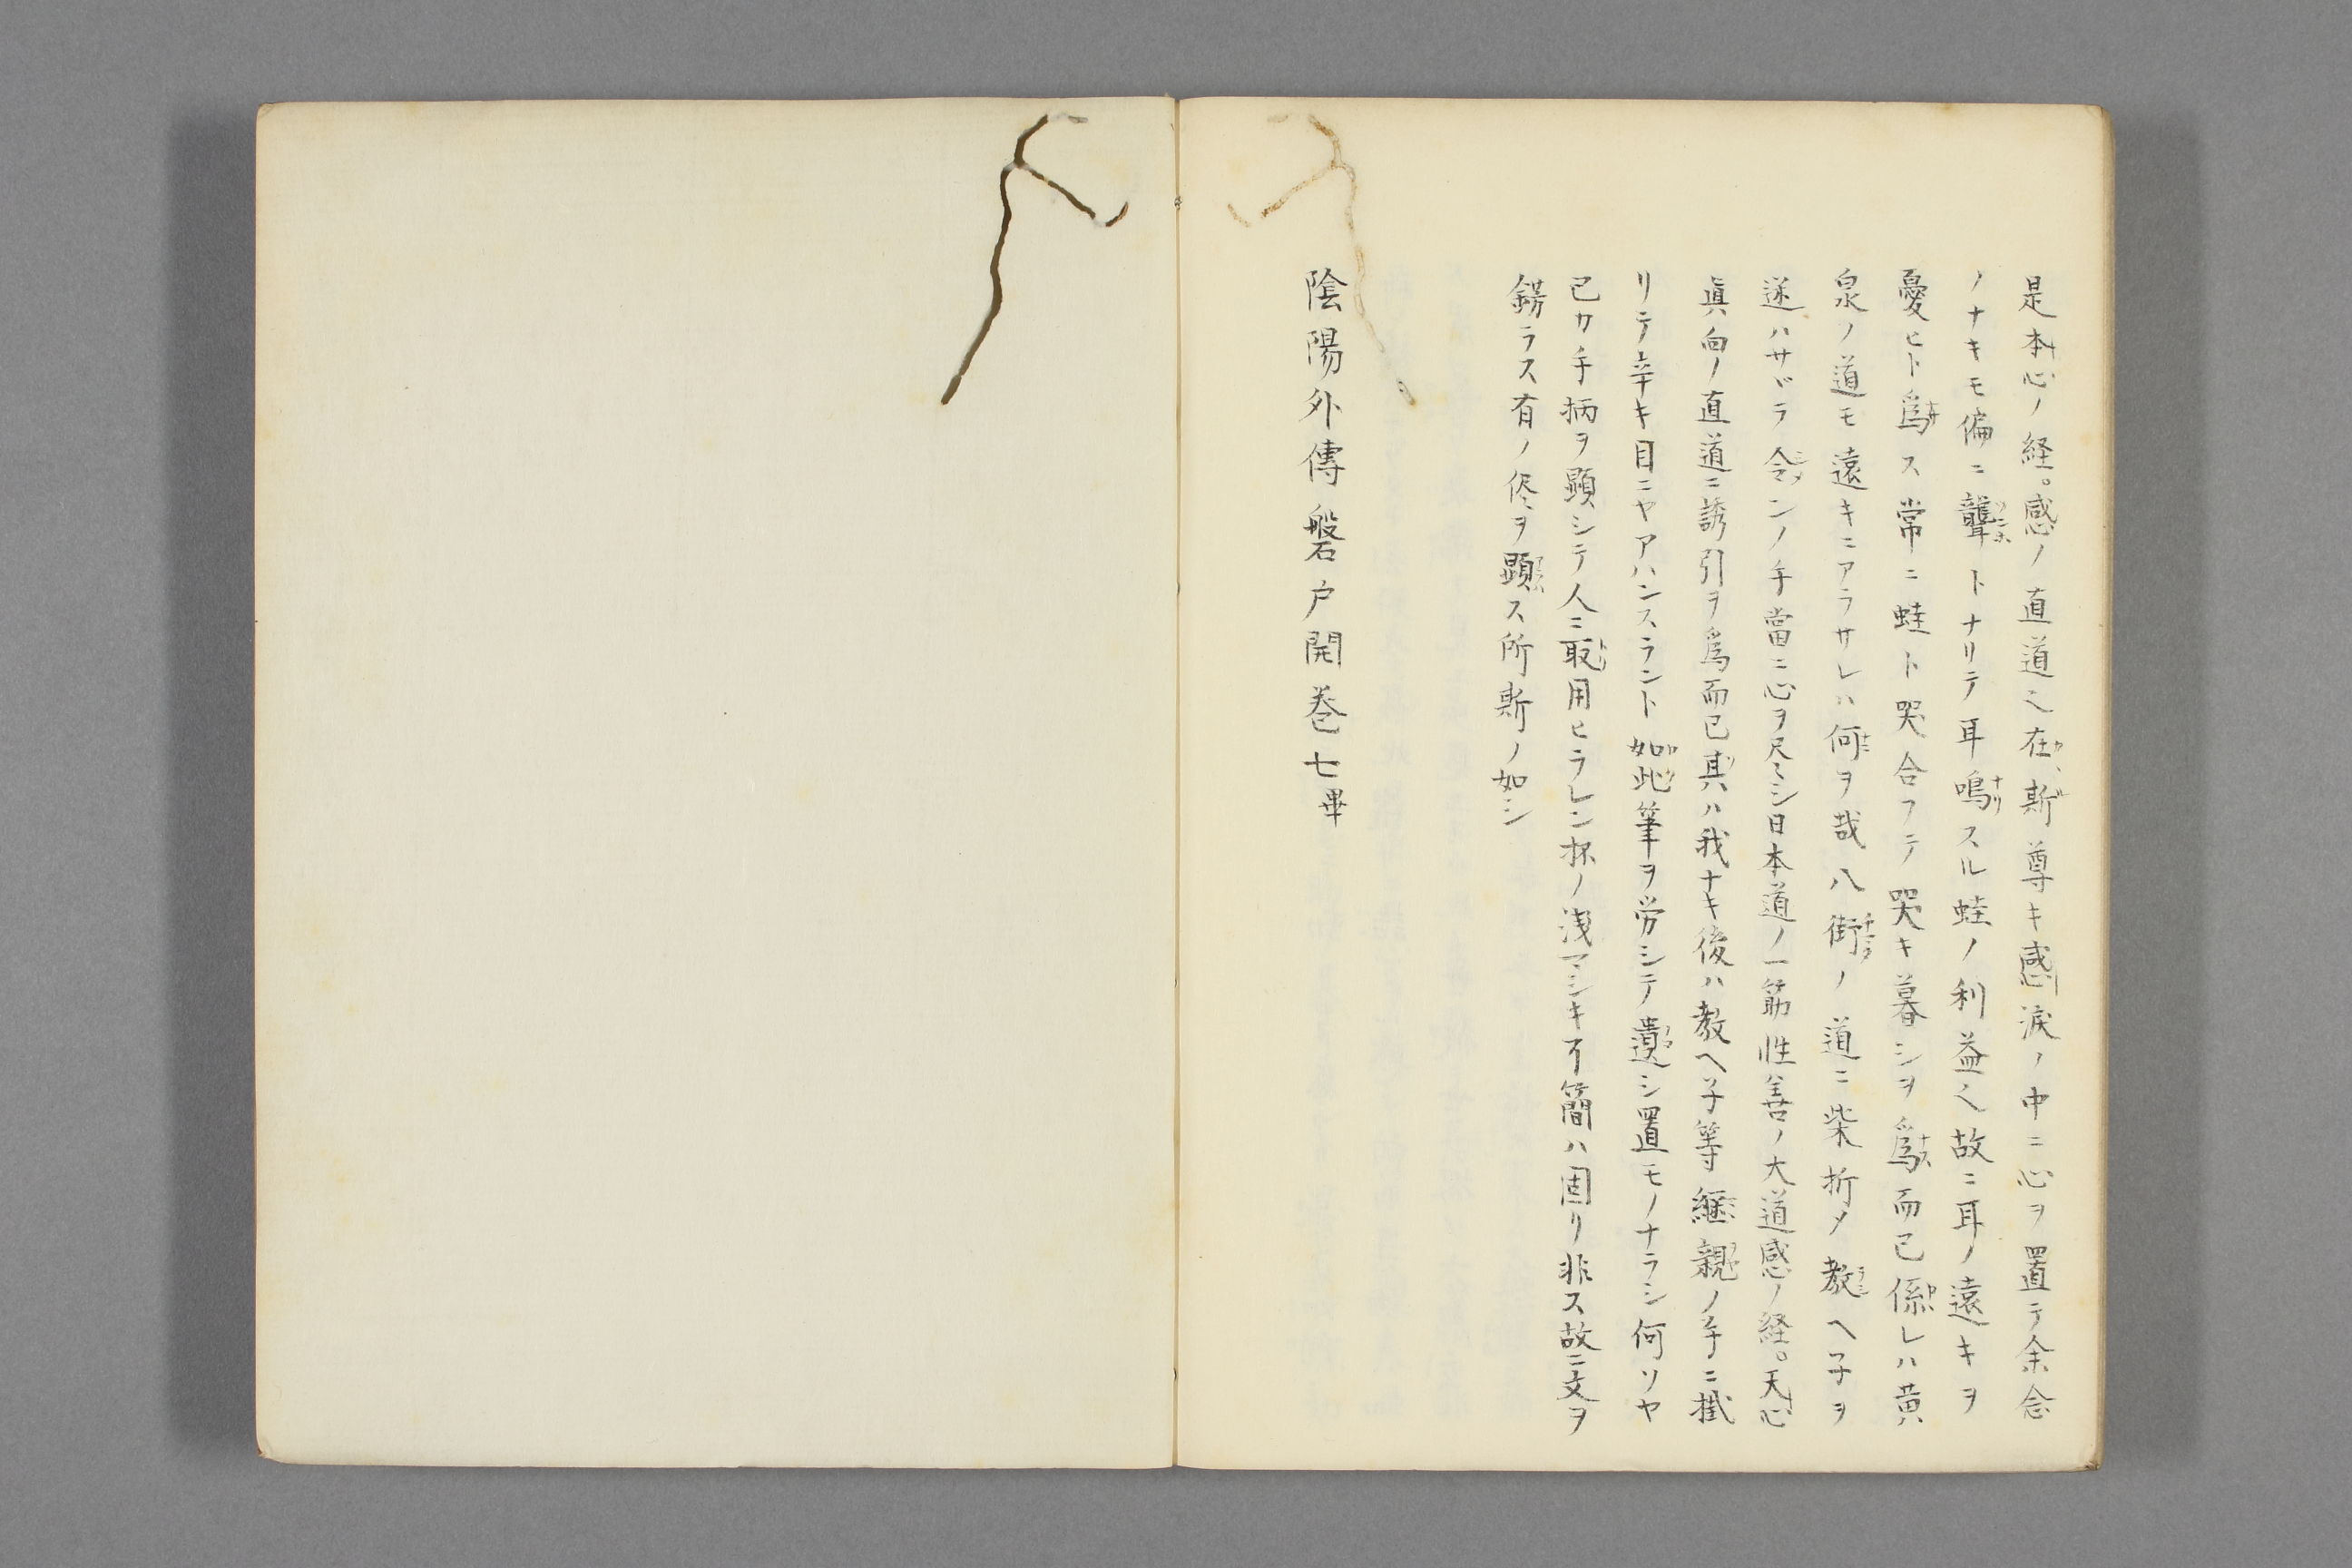 是本心ノ経。感ノ直道之在、斯尊キ感涙ノ中ニ心ヲ置テ余念
ノナキモ偏ニ聾トナリテ耳鳴スル蛙ノ利益之故ニ耳ノ遠キヲ
憂ヒト為ス常ニ蛙ト哭合フテ哭キ暮シヲ為而已係レハ黄
泉ノ道モ遠キニアラサレハ何ヲ哉八街ノ道ニ柴折メ教ヘ子ヲ
迷ハサヾラ令ンノ手當ニ心ヲ尽シ日本道ノ一筋性善ノ大道感ノ経。天心
真向ノ直道ニ誘引ヲ為而已其ハ我ナキ後ハ教ヘ子等継親ノ手ニ掛
リテ辛キ目ニヤアハンスラント如此筆ヲ労シテ遺シ置モノナラシ何ソヤ
己カ手柄ヲ顕シテ人ニ取用ヒラレン抔ノ浅マシキ了簡ハ固リ非ス故ニ文ヲ
錺ラス有ノ侭ヲ顕ス所斯ノ如シ
陰陽外傳磐戸開巻七畢